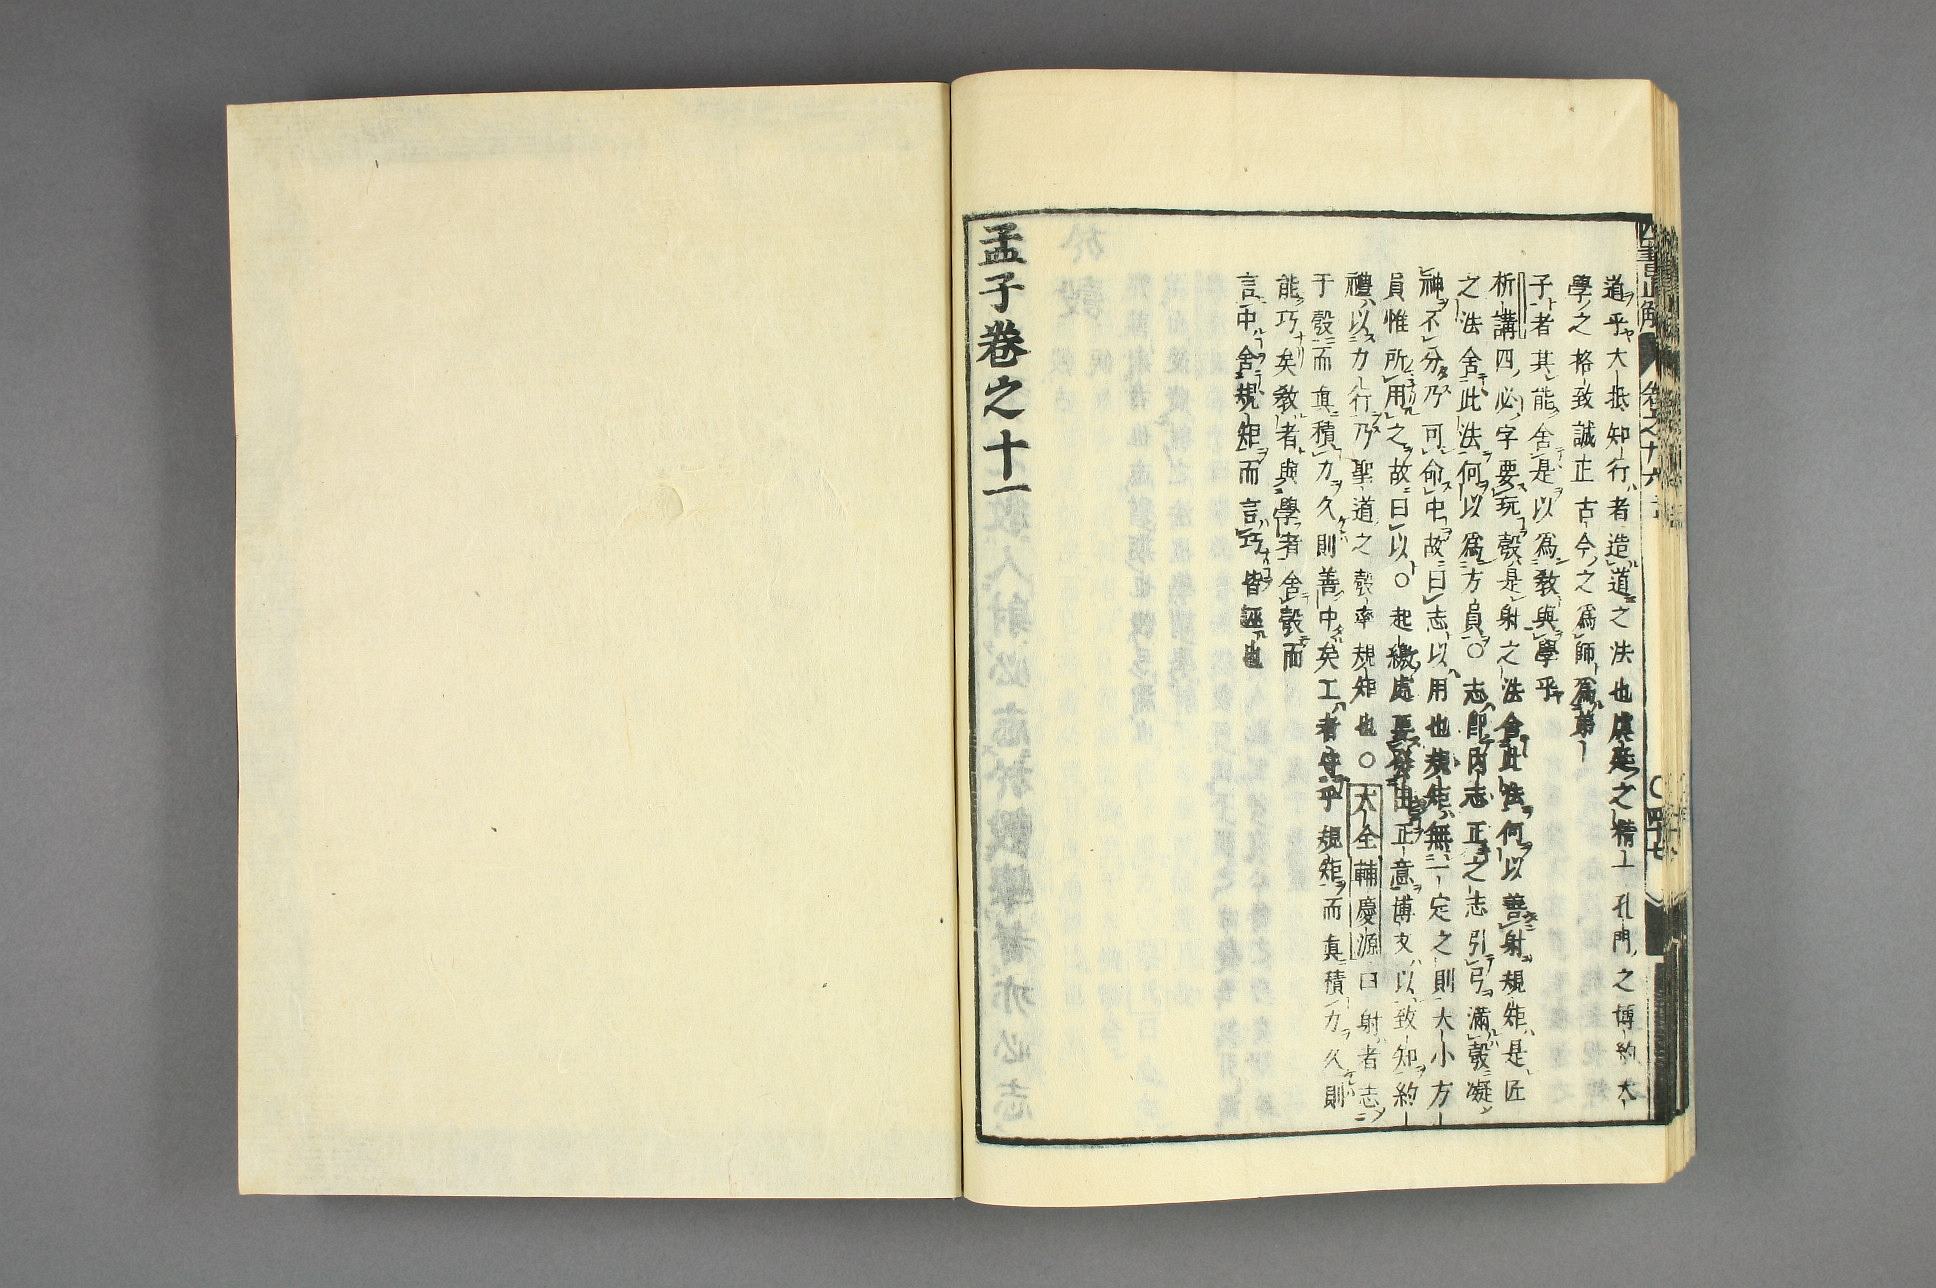 道乎大抵知行者造道之法也虞廷之精一孔門之博約大
學之格致誠正古今之爲師爲弟
子者其能舍是以爲教與學乎
析講四必字要玩彀是射之法舍此法何以善射規矩是匠
之法舍此法何以爲方員〇志即内志正之志引弓滿彀凝
神不分乃可命中故曰志以用也規矩無一定之則大小方
員惟所用之故曰以〇起繳處要發出正意博文以致知約
禮以力行乃聖道之彀率規矩也〇大全輔慶源曰射者志
于彀而眞積力久則善中矣工者守乎規矩而眞積力久則
能巧矣教者與學者舍彀而
言中舍規矩而言巧皆誣也
孟子卷之十一
四書正解 卷之十六 四十七